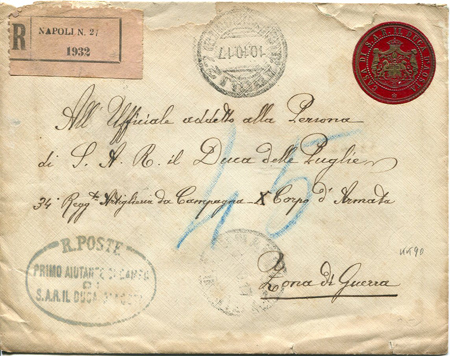 R
NAPOLI N. 27
1932
10.10.17
CASA DI S.A.R. IL DUCA D'AOSTA
All'Ufficiale addetto alla Persona
di S. A. R. il Duca delle Puglie
34° Regg.to Artiglieria da Campagna - X Corpo d'Armata
Zona di Guerra
45
R. POSTE
PRIMO AIUTANTE DI CAMPO
DI
S.A.R. IL DUCA D'AOSTA